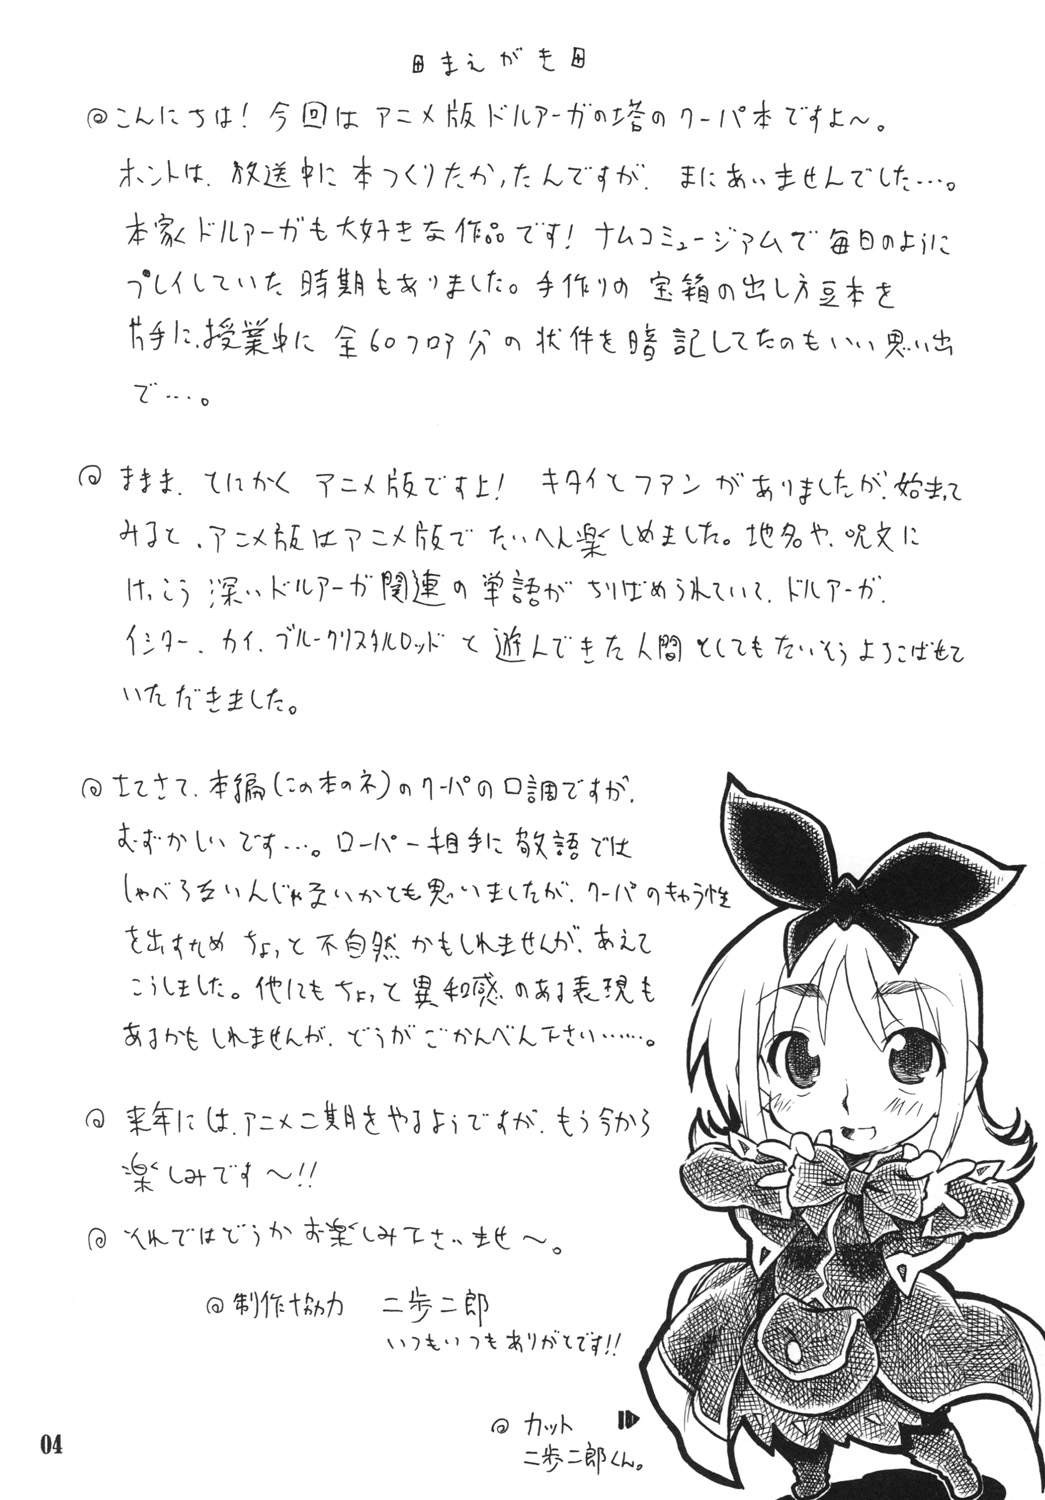 まえがき
こんにちは！今回はアニメ版ドルアーガの塔のクーパ本ですよ〜。
ホントは、放送中に本つくりたかったんですが、まにあいませんでした…。
本家ドルアーガも大好きな作品です！ナムコミュージアムで毎日のように
プレイしていた時期もありました。手作りの宝箱の出し方豆本を
片手に、授業中に全60フロア分の状件を暗記してたのもいい思い出
で…。
ままま、とにかくアニメ版ですよ！キタイとファンがありましたが、始まって
みると、アニメ版はアニメ版でたいへん楽しめました。地名や、呪文に
けっこう深いドルアーガ関連の単語がちりばめられていて、ドルアーガ、
イシター、カイ、ブルークリスタルロッドと遊んできた人間としてもたいそうよろこばせて
いただきました。
さてさて、本編（この本のネ）のクーパの口調ですが、
むずかしいです…。ローパー相手に敬語では
しゃべらないんじゃないかとも思いましたが、クーパのキャラ性
を出すためちょっと不自然かもしれませんが、あえて
こうしました。他にもちょっと異和感のある表現も
あるかもしれませんが、どうかごかんべん下さい……。
来年には、アニメ二期をやるようですが、もう今から
楽しみです〜！！
それではどうかお楽しみ下さいませ〜。
制作協力 二歩二郎
いつもいつもありがとです！！
カット
二歩二郎くん。
04